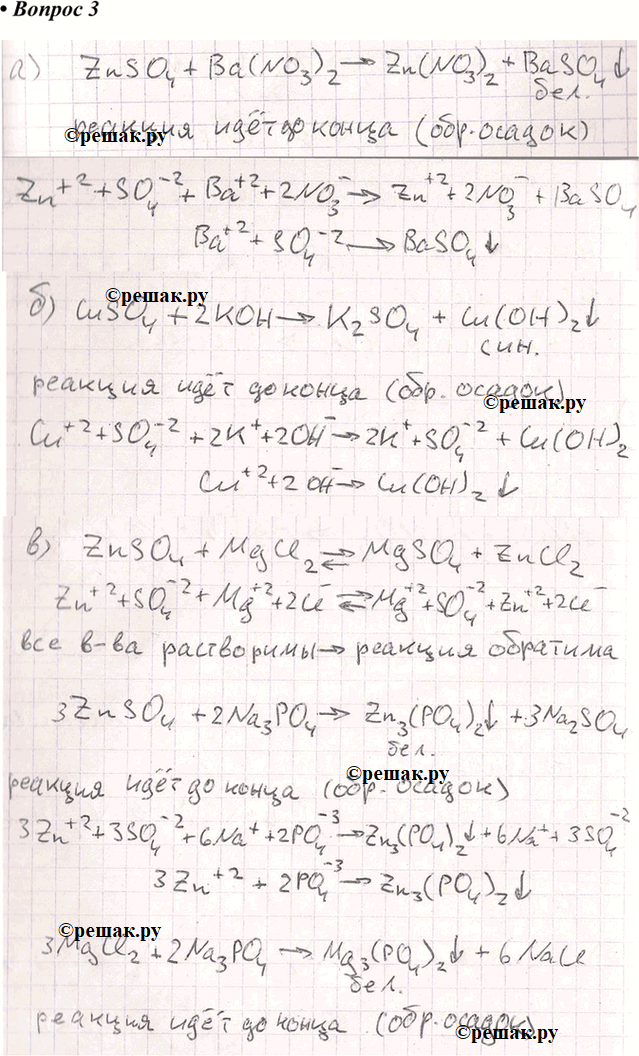 • Вопрос 3
а) ZnSO₄ + Ba(NO₃)₂ → Zn(NO₃)₂ + BaSO₄↓
бел.
©решак.ру
реакция идёт до конца (обр. осадок)
Zn⁺² + SO₄⁻² + Ba⁺² + 2NO₃⁻ → Zn⁺² + 2NO₃⁻ + BaSO₄
Ba⁺² + SO₄⁻² → BaSO₄↓
©решак.ру
б) CuSO₄ + 2KOH → K₂SO₄ + Cu(OH)₂↓
син.
реакция идёт до конца (обр. осадок)
©решак.ру
Cu⁺² + SO₄⁻² + 2K⁺ + 2OH⁻ → 2K⁺ + SO₄⁻² + Cu(OH)₂
Cu⁺² + 2OH⁻ → Cu(OH)₂↓
в) ZnSO₄ + MgCl₂ ⇄ MgSO₄ + ZnCl₂
Zn⁺² + SO₄⁻² + Mg⁺² + 2Cl⁻ ⇄ Mg⁺² + SO₄⁻² + Zn⁺² + 2Cl⁻
все в-ва растворимы → реакция обратима
3ZnSO₄ + 2Na₃PO₄ → Zn₃(PO₄)₂↓ + 3Na₂SO₄
бел.
©решак.ру
реакция идёт до конца (обр. осадок)
3Zn⁺² + 3SO₄⁻² + 6Na⁺ + 2PO₄⁻³ → Zn₃(PO₄)₂↓ + 6Na⁺ + 3SO₄⁻²
3Zn⁺² + 2PO₄⁻³ → Zn₃(PO₄)₂↓
©решак.ру
3MgCl₂ + 2Na₃PO₄ → Mg₃(PO₄)₂↓ + 6NaCl
бел.
реакция идёт до конца (обр. осадок)
©решак.ру